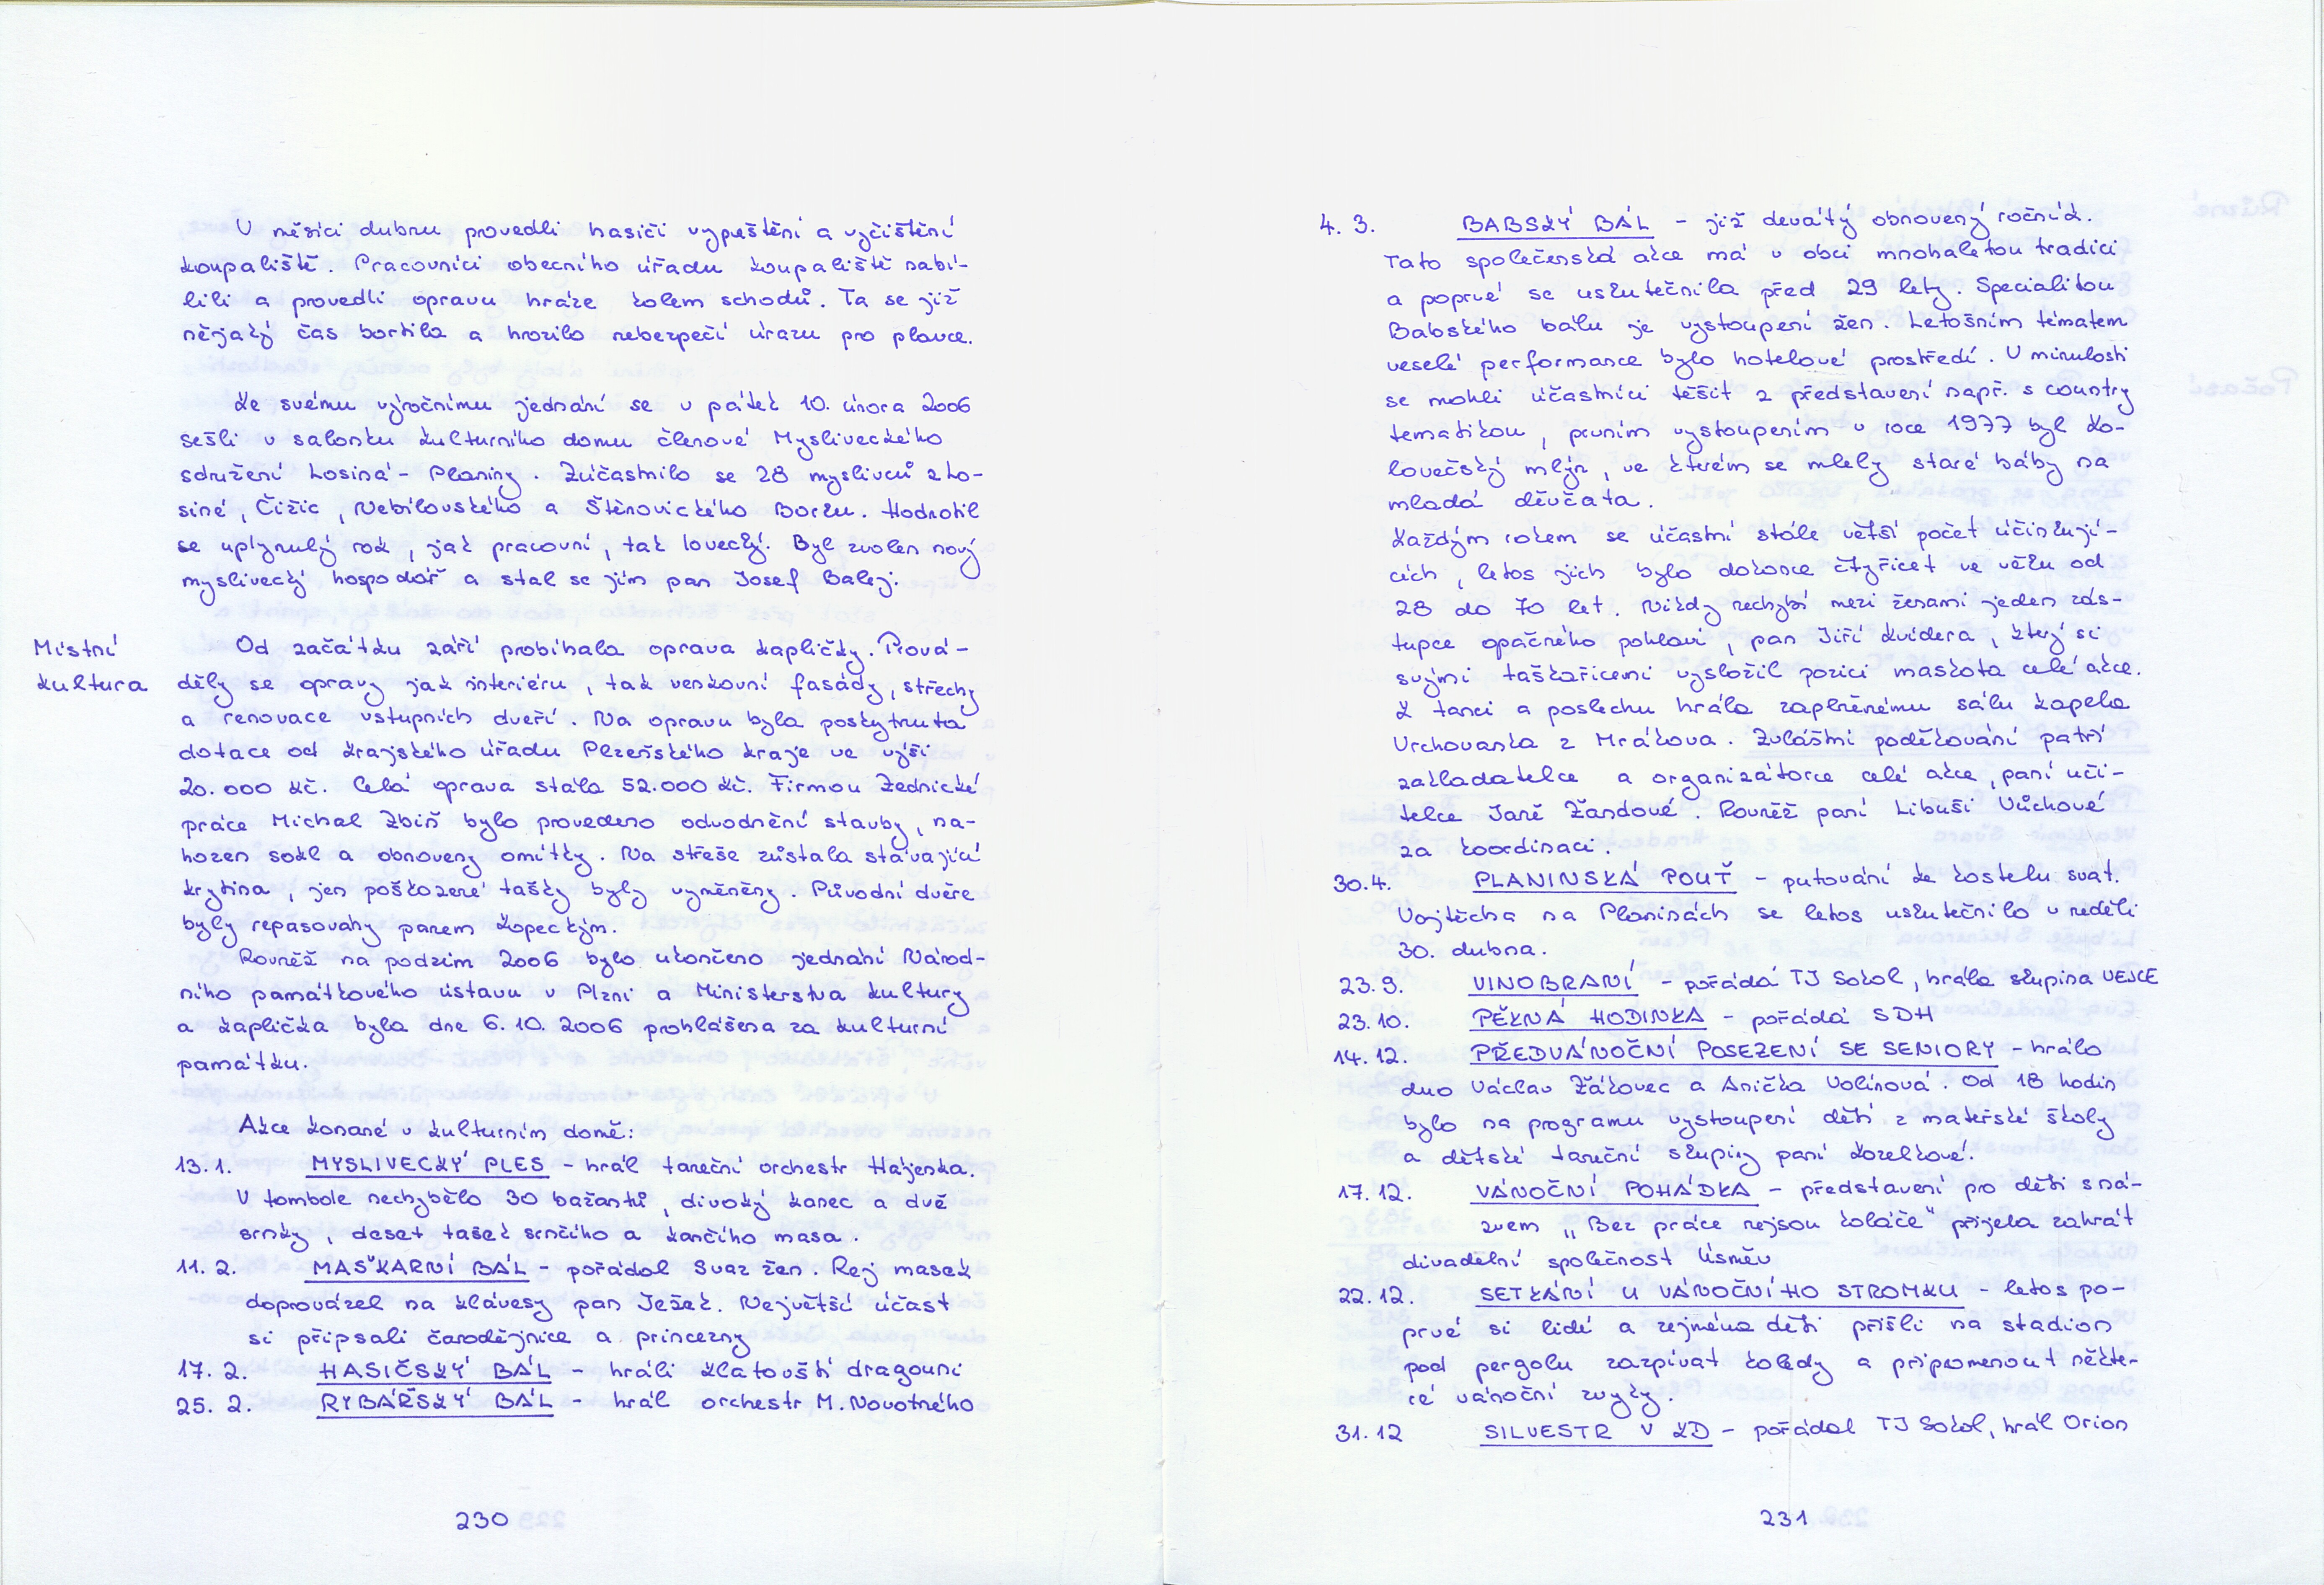 V měsíci dubnu provedli hasiči vypuštění a vyčištění
koupaliště. Pracovníci obecního úřadu koupaliště nabí-
lili a provedli opravu hráze kolem schodů. Ta se již
nějaký čas bortila a hrozilo nebezpečí úrazu pro plavce.
Ke svému výročnímu jednání se v pátek 10. února 2006
sešli v salonku kulturního domu členové Mysliveckého
sdružení Losiná - Planiny. Zúčastnilo se 28 myslivců z Lo-
siné, Čižic, Nebílovského a Štěnovického Borku. Hodnotil
se uplynulý rok, jak pracovní, tak lovecký. Byl zvolen nový
myslivecký hospodář a stal se jím pan Josef Balej.
Místní
kultura
Od začátku září probíhala oprava kapličky. Prová-
děly se opravy jak interiéru, tak venkovní fasády, střechy
a renovace vstupních dveří. Na opravu byla poskytnuta
dotace od krajského úřadu Plzeňského kraje ve výši
20.000 Kč. Celá oprava stála 52.000 Kč. Firmou Zednické
práce Michal Zbiň bylo provedeno odvodnění stavby, na-
hozen sokl a obnoveny omítky. Na střeše zůstala stávající
krytina, jen poškozené tašky byly vyměněny. Původní dveře
byly repasovány panem Kopeckým.
Rovněž na podzim 2006 bylo ukončeno jednání Národ-
ního památkového ústavu v Plzni a Ministerstva kultury
a kaplička byla dne 6.10. 2006 prohlášena za kulturní
památku.
Akce konané v kulturním domě:
13.1. MYSLIVECKÝ PLES - hrál taneční orchestr Hájenka.
V tombole nechybělo 30 bažantů, divoký kanec a dvě
srnky, deset tašek srnčího a kančího masa.
11. 2. MAŠKARNÍ BÁL - pořádal Svaz žen. Rej masek
doprovázel na klávesy pan Ježek. Největší účast
si připsali čarodějnice a princezny
17. 2. HASIČSKÝ BÁL - hráli Klatovští dragouni
25. 2. RYBÁŘSKÝ BÁL - hrál orchestr M. Novotného
230
4. 3. BABSKÝ BÁL - již devátý obnovený ročník.
Tato společenská akce má v obci mnohaletou tradici
a poprvé se uskutečnila před 29 lety. Specialitou
Babského bálu je vystoupení žen. Letošním tématem
veselé performance bylo hotelové prostředí. V minulosti
se mohli účastníci těšit z představení např. s country
tematikou, prvním vystoupením v roce 1977 byl Ko-
lovečský mlýn, ve kterém se mlely staré báby na
mladá děvčata.
Každým rokem se účastní stále větší počet účinkují-
cích, letos jich bylo dokonce čtyřicet ve věku od
28 do 70 let. Nikdy nechybí mezi ženami jeden zás-
tupce opačného pohlaví, pan Jiří Kvídera, který si
svými taškařicemi vysloužil pozici maskota celé akce.
K tanci a poslechu hrála zaplněnému sálu kapela
Vrchovanka z Mrákova. Zvláštní poděkování patří
zakladatelce a organizátorce celé akce, paní uči-
telce Janě Žandové. Rovněž paní Libuši Vůchové
za koordinaci.
30.4. PLANINSKÁ POUŤ - putování ke kostelu svat.
Vojtěcha na Planinách se letos uskutečnilo v neděli
30. dubna.
23.9. VINOBRANÍ - pořádá TJ Sokol, hrála skupina VEJCE
23.10. PĚKNÁ HODINKA - pořádá SDH
14.12. PŘEDVÁNOČNÍ POSEZENÍ SE SENIORY - hrálo
duo Václav Žákovec a Anička Volínová. Od 18 hodin
bylo na programu vystoupení dětí z mateřské školy
a dětské taneční skupiny paní Kozelkové.
17.12. VÁNOČNÍ POHÁDKA - představení pro děti s ná-
zvem „Bez práce nejsou koláče" přijela zahrát
divadelní společnost Úsměv
22.12. SETKÁNÍ U VÁNOČNÍHO STROMKU - letos po-
prvé si lidé a zejména děti přišli na stadion
pod pergolu zazpívat koledy a připomenout někte-
ré vánoční zvyky.
31.12 SILVESTR V KD - pořádal TJ Sokol, hrál Orion
231